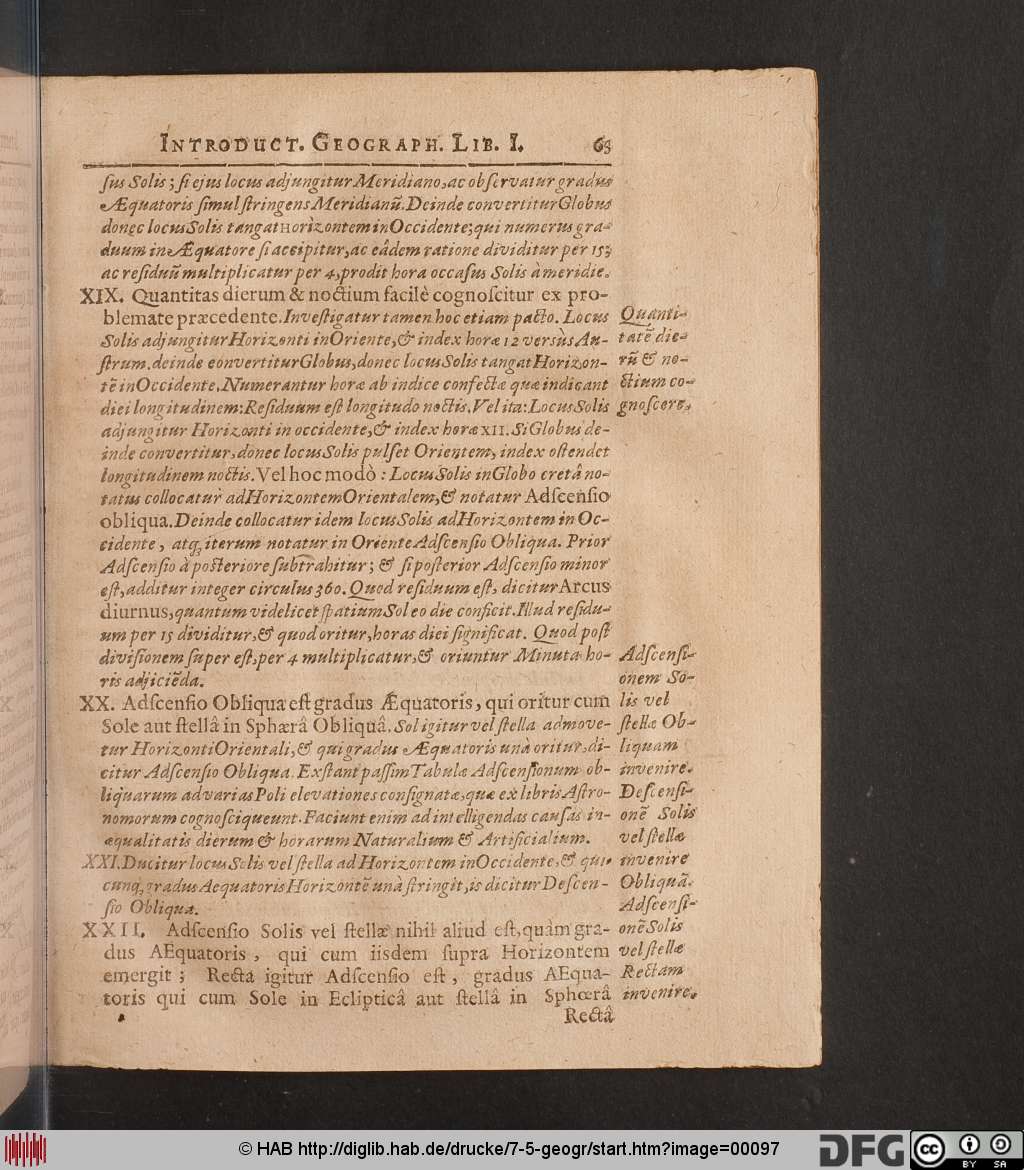 INTRODUCT. GEOGRAPH. LIB. I. 68
ſus Solis; ſi ejus locus adjungitur Meridiano, ac obſervatur gradus
Æquatoris ſimul ſtringens Meridianū. Deinde convertitur Globus
donec locus Solis tangat Horizontem in Occidente; qui numerus gra-
duum in Æquatore ſi accipitur, ac eâdem ratione dividitur per 15;
ac reſiduū multiplicatur per 4, prodit hora occaſus Solis à meridie.
XIX. Quantitas dierum & noctium facilè cognoſcitur ex pro-
blemate præcedente. Inveſtigatur tamen hoc etiam pacto. Locus
Solis adjungitur Horizonti in Oriente, & index horæ 12 versùs Au-
ſtrum. deinde eonvertitur Globus, donec locus Solis tangat Horizon-
tē in Occidente. Numerantur horæ ab indice confectæ quæ indicant
diei longitudinem: Reſiduum eſt longitudo noctis. Vel ita: Locus Solis
adjungitur Horizonti in occidente, & index horæ XII. Si Globus de-
inde convertitur, donec locus Solis pulſet Orientem, index oſtendet
longitudinem noctis. Vel hoc modò: Locus Solis in Globo cretâ no-
tatus collocatur ad Horizontem Orientalem, & notatur Adſcenſio
obliqua. Deinde collocatur idem locus Solis ad Horizontem in Oc-
cidente, atq; iterum notatur in Oriente Adſcenſio Obliqua. Prior
Adſcenſio à poſteriore ſubtrahitur; & ſi poſterior Adſcenſio minor
eſt, additur integer circulus 360. Quod reſiduum eſt, dicitur Arcus
diurnus, quantum videlicet ſpatium Sol eo die conficit. Illud reſidu-
um per 15 dividitur, & quod oritur, horas diei ſignificat. Quod poſt
diviſionem ſuper eſt, per 4 multiplicatur, & oriuntur Minuta ho-
ris adjiciēda.
XX. Adſcenſio Obliqua eſt gradus Æquatoris, qui oritur cum
Sole aut ſtellâ in Sphærâ Obliquâ. Sol igitur vel ſtella admove-
tur Horizonti Orientali, & qui gradus Æquatoris unà oritur, di-
citur Adſcenſio Obliqua. Exſtant paſſim Tabulæ Adſcenſionum ob-
liquarum ad varias Poli elevationes conſignatæ, quæ ex libris Aſtro-
nomorum cognoſci queunt. Faciunt enim ad intelligendas cauſas in-
æqualitatis dierum & horarum Naturalium & Artificialium.
XXI. Ducitur locus Solis vel ſtella ad Horizontem in Occidente, & qui-
cunq; gradus Aequatoris Horizontē unà ſtringit, is dicitur Deſcen-
ſio Obliqua.
XXII. Adſcenſio Solis vel ſtellæ nihil aliud eſt, quàm gra-
dus AEquatoris, qui cum iisdem ſupra Horizontem
emergit; Recta igitur Adſcenſio eſt, gradus AEqua-
toris qui cum Sole in Eclipticâ aut ſtellâ in Sphœrâ
Rectâ
Quanti-
tatē die-
rū & no-
ctium co-
gnoſcere.
Adſcenſi-
onem So-
lis vel
ſtellæ Ob-
liquam
invenire.
Deſcenſi-
onē Solis
vel ſtellæ
invenire
Obliquā.
Adſcenſi-
onē Solis
vel ſtellæ
Rectam
invenire.
© HAB http://diglib.hab.de/drucke/7-5-geogr/start.htm?image=00097
DFG
cc BY SA